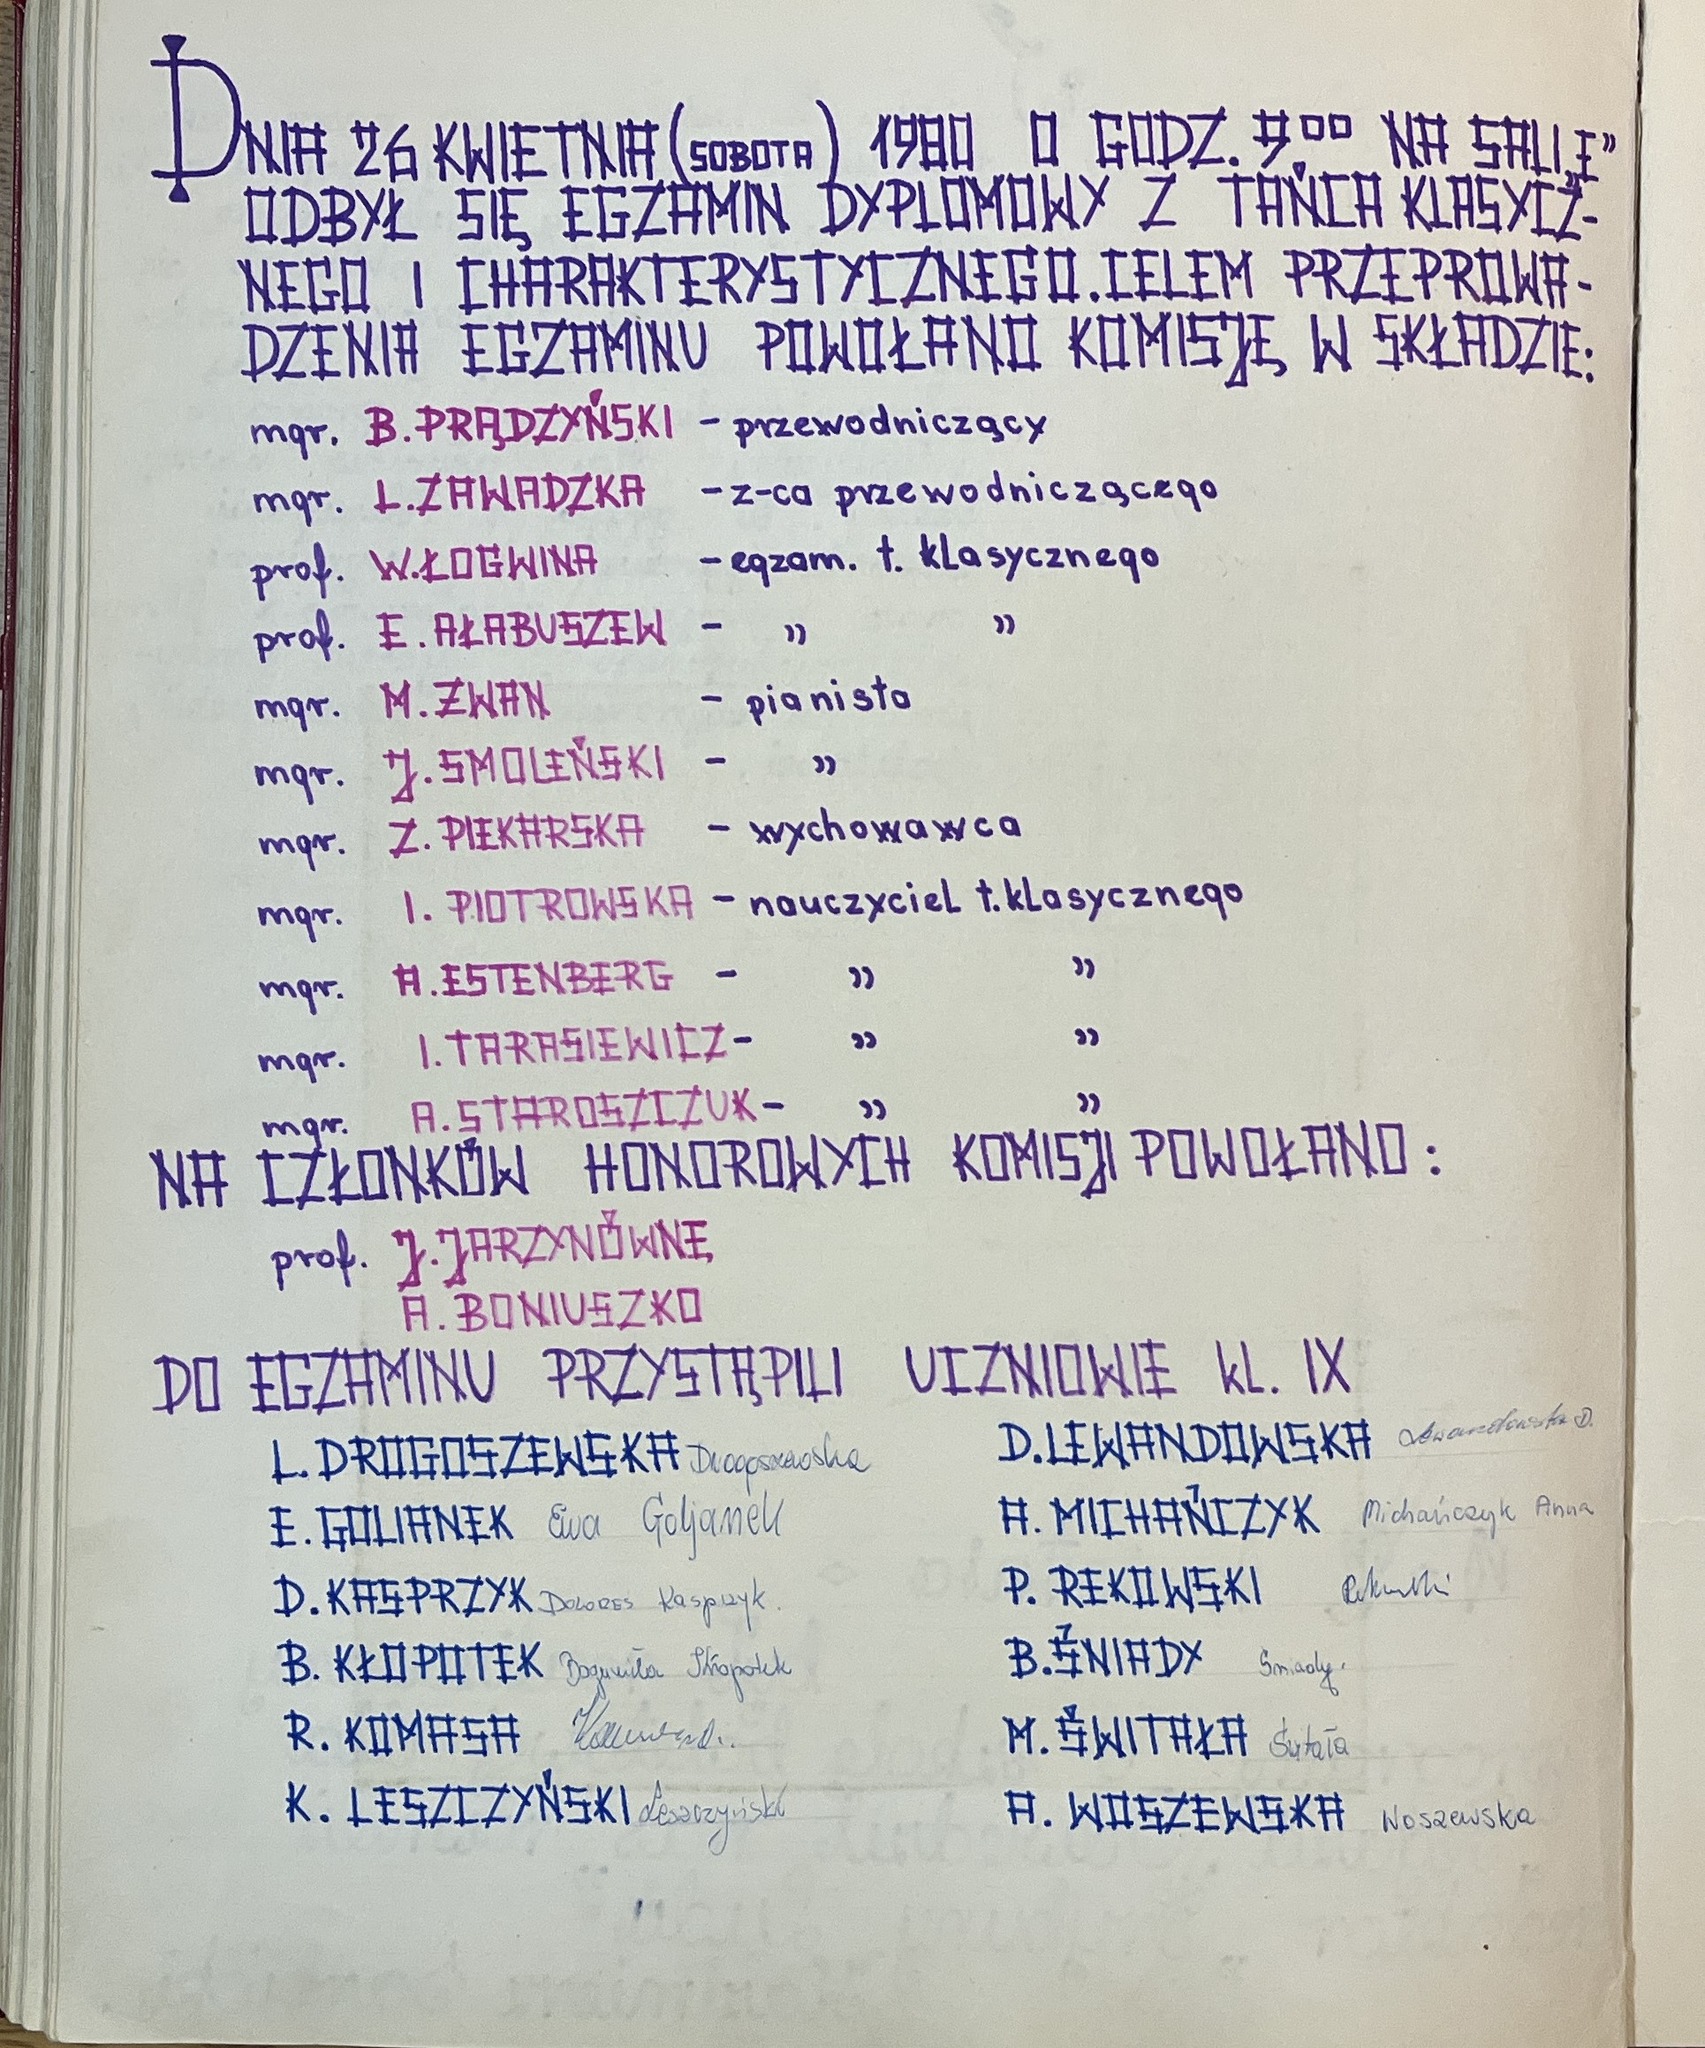 DNIA 26 KWIETNIA (SOBOTA) 1980 O GODZ. 9⁰⁰ NA SALI „E”
ODBYŁ SIĘ EGZAMIN DYPLOMOWY Z TAŃCA KLASYCZ-
NEGO I CHARAKTERYSTYCZNEGO. CELEM PRZEPROWA-
DZENIA EGZAMINU POWOŁANO KOMISJĘ W SKŁADZIE:
mgr. B. PRĄDZYŃSKI – przewodniczący
mgr. L. ZAWADZKA – z-ca przewodniczącego
prof. W. ŁOGWINA – egzam. t. klasycznego
prof. E. AŁABUSZEW – „ „
mgr. M. ZWAN – pianista
mgr. J. SMOLEŃSKI – „
mgr. Z. PIEKARSKA – wychowawca
mgr. I. PIOTROWSKA – nauczyciel t. klasycznego
mgr. A. ESTENBERG – „ „
mgr. I. TARASIEWICZ – „ „
mgr. A. STAROSZCZUK – „ „
NA CZŁONKÓW HONOROWYCH KOMISJI POWOŁANO:
prof. J. JARZYNÓWNĘ
A. BONIUSZKO
DO EGZAMINU PRZYSTĄPILI UCZNIOWIE kl. IX
L. DROGOSZEWSKA Drogoszewska D. LEWANDOWSKA Lewandowska D.
E. GOLIANEK Ewa Goljanek A. MICHAŃCZYK Michańczyk Anna
D. KASPRZYK Dolores Kasprzyk. P. REKOWSKI
B. KŁOPOTEK Bogumiła Kłopotek B. ŚNIADY Śniady.
R. KOMASA M. ŚWITAŁA Świtała
K. LESZCZYŃSKI Leszczyński A. WOSZEWSKA Woszewska